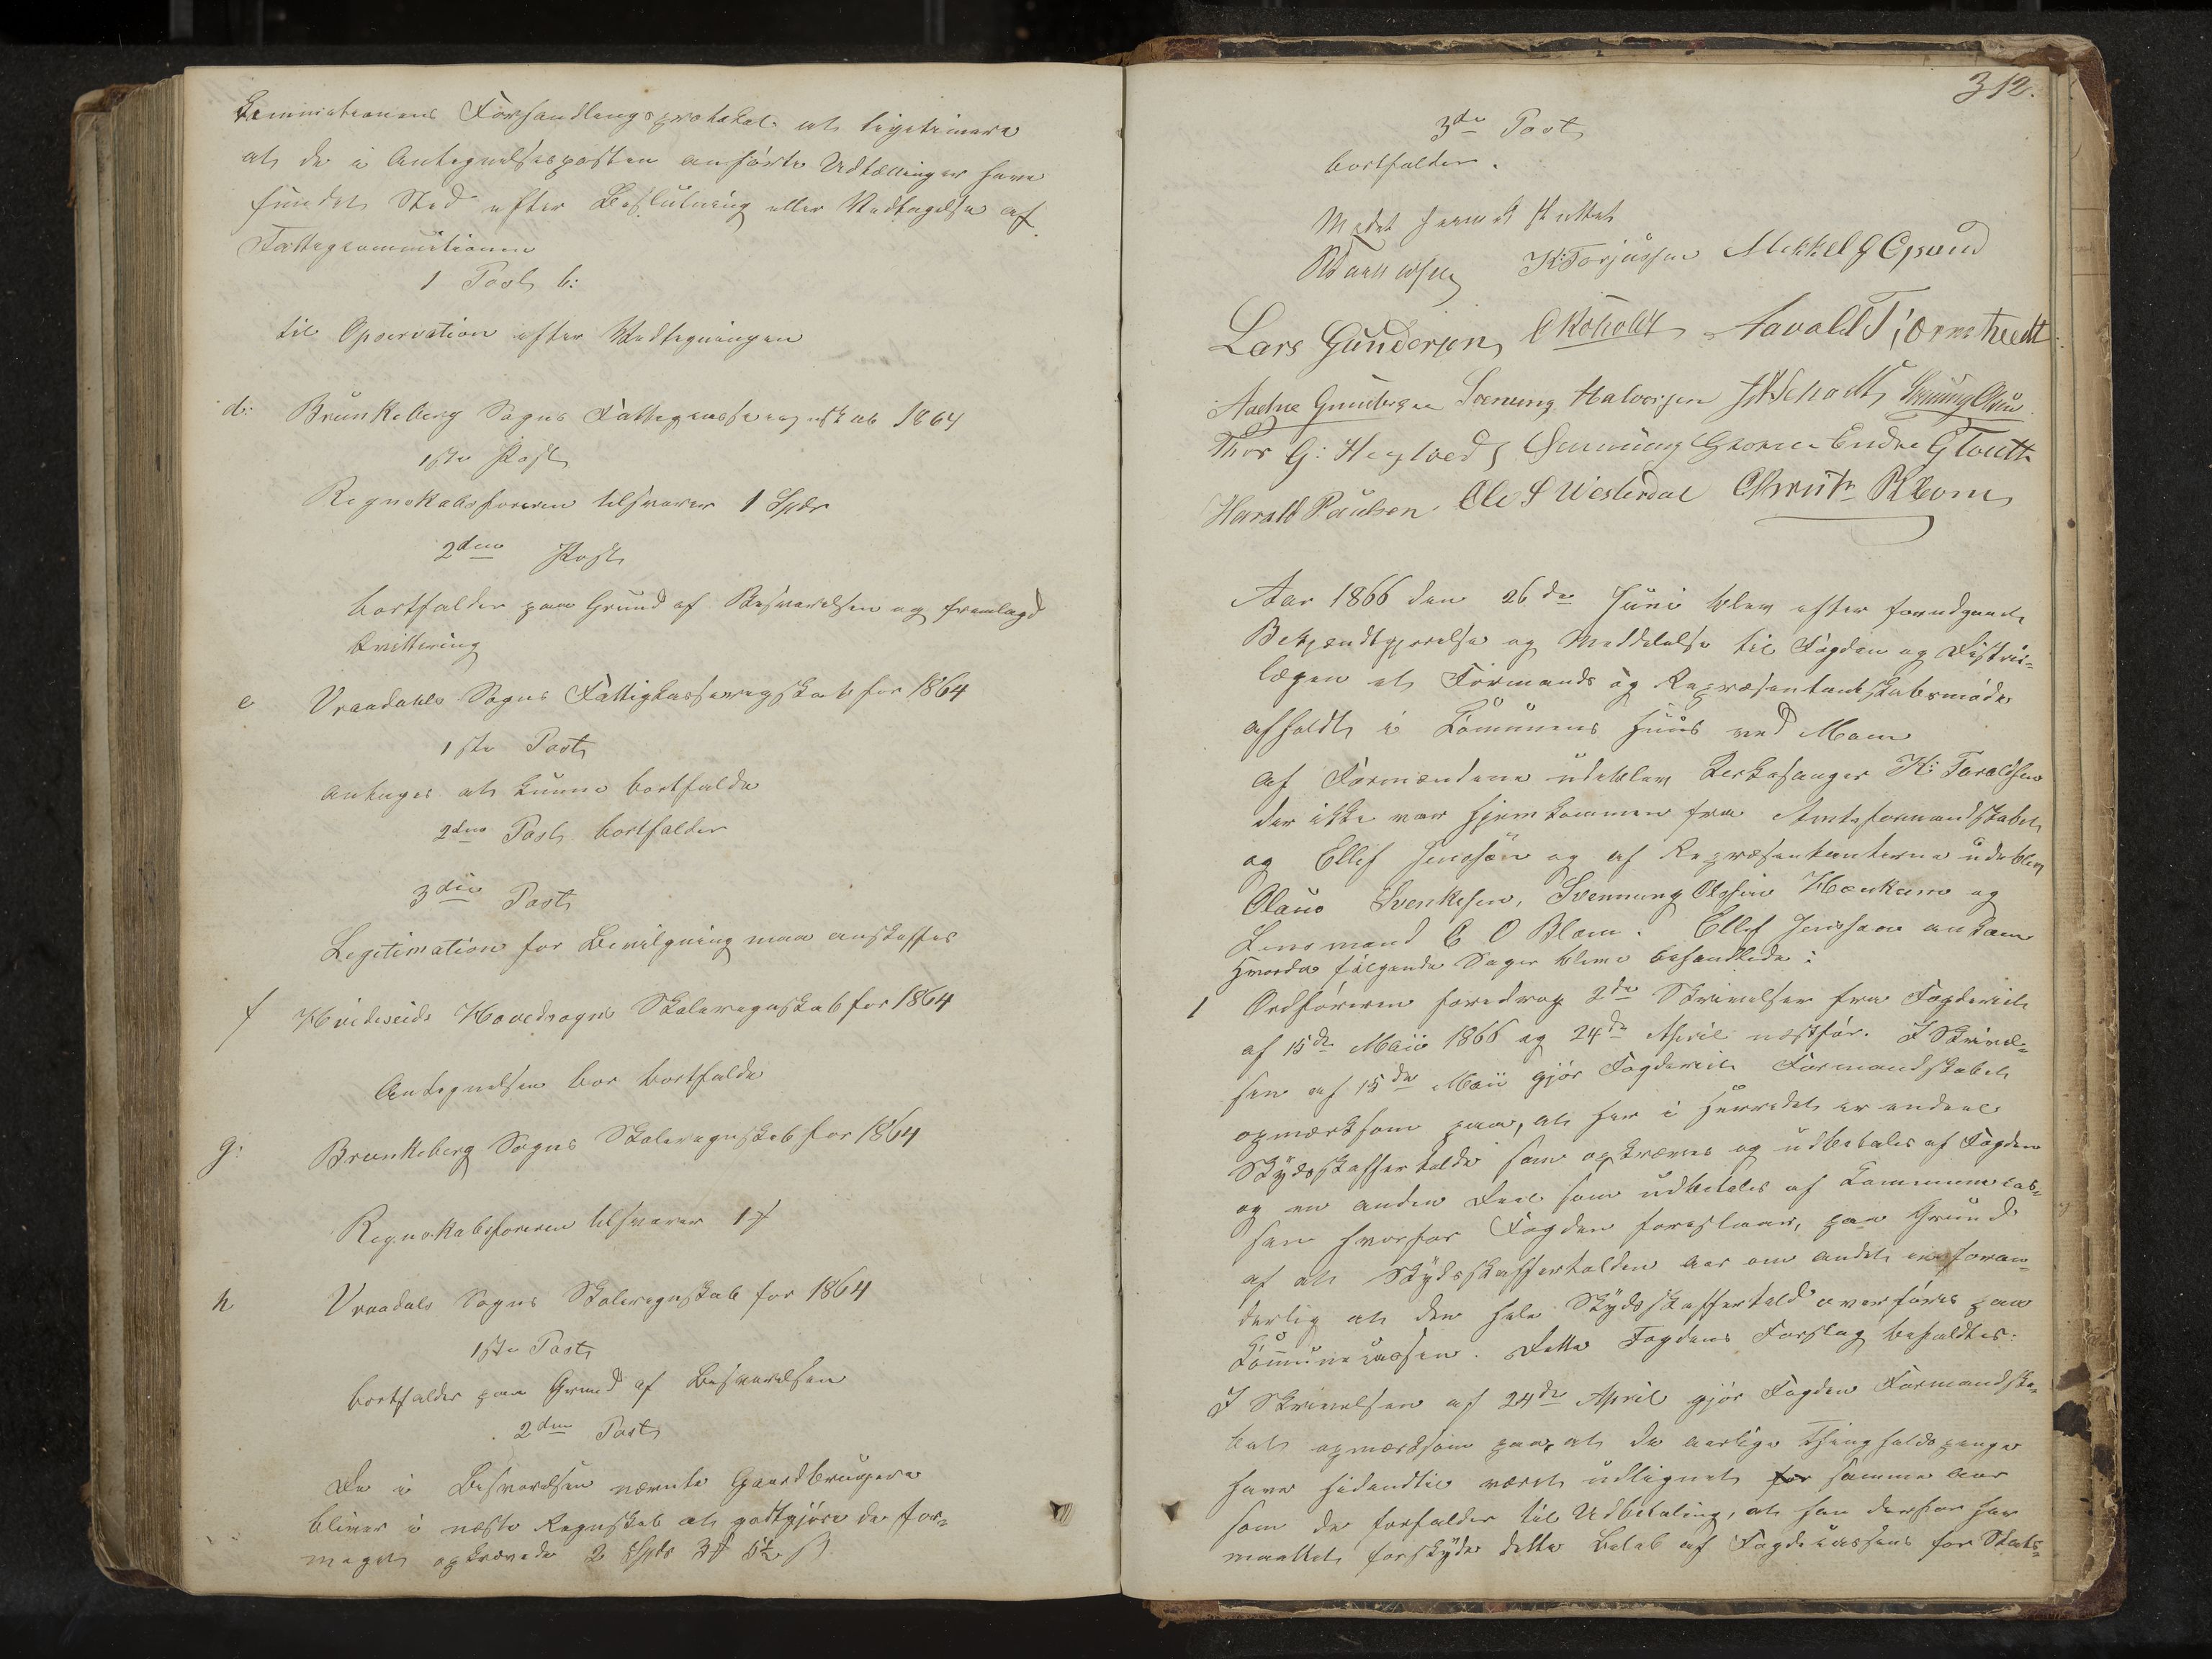 Commissionens Forhandlingsprotokol at legitimere
at de i Antegnelsesposten anførte Udtællinger have
fundet Sted efter Beslutning eller Vedtagelse af
Fattigcommissionen
1 Post b:
til Observation efter Vedtegningen
d: Brunkeberg Sogns Fattigcasseregnskab 1864
1ste Post
Regnskabsføreren tilsvarer 1 Spdr
2den Post
bortfalder paa Grund af Besvarelsen og fremlagd
Qvittering
e Vraadahls Sogns Fattigkasseregnskab for 1864
1ste Post
antages at kunne bortfalde
2den Post bortfalder
3die Post
Legitimation for Bevilgning maa anskaffes
f Hvideseids Hovedsogns Skoleregnskab for 1864
Antegnelsen bør bortfalde
g: Brunkeberg Sogns Skoleregnskab for 1864
Regnskabsføreren tilsvarer 1
h Vraadals Sogns Skoleregnskab for 1864
1ste Post
bortfalder paa Grund af Besvarelsen
2den Post
De i Besvarelsen nævnte Gaardbrugere
bliver i næste Regnskab at godtgjøre de for-
meget opkrævede 2 Spdr 3 5½ ß
312.
3die Post
bortfalder.
Mødet hermed sluttet
K: Torjussen Mekkel G Opsund
Lars Gundersen Aavald Tiørnstvedt
Aadne Gundersen Svenung Halvorsen Svenung Olsen
Thor G: Heglved Svenning Endre G
Harald Paulsen Ole S Westerdal Blom
Aar 1866 den 26de Juni blev efter forudgaaende
Bekjendtgjørelse og Meddelelse til Fogden og Distrikts-
lægen et Formands og Repræsentantskabsmøde
afholdt i Communens Huus ved Moen
Af Formændene udeblev Kirkesanger K: Taraldsen
der ikke var hjemkommen fra Amtsformandskabet
og Ellef Jensson og af Repræsentanterne udeblev
Olaus Svenkesen, Svennung Olsson Haukom og
Lensmand C O Blom. Ellef Jensson ankom
Hvorda følgende Sager bleve behandlede:
1 Ordføreren foredrog 2de Skrivelser fra Fogderiet
af 15de Maii 1866 og 24de April næstfør. I Skrivel-
sen af 15de Maii gjør Fogderiet Formandskabet
opmærksom paa, at her i Herredet er endeel
Skydsskaffertolde som opkræves og udbetales af Fogden
og en anden Deel som udbetales af Kommunecas-
sen hvorfor Fogden foreslaaer, paa Grund
af at Skydsskaffertolden Aar om andet er foran-
derlig at den hele Skydsskaffertold overføres paa
Communecassen. Dette Fogdens Forslag bifaldtes.
I Skrivelsen af 24de April gjør Fogden Formandska-
bet opmærksom paa, at de aarlige Thingholdspenge
have hidindtil været udlignet for samme Aar
som de forfalder til Udbetaling, at han derfor har
maattet forskyde dette Beløb af Fogdecassens for Stats-